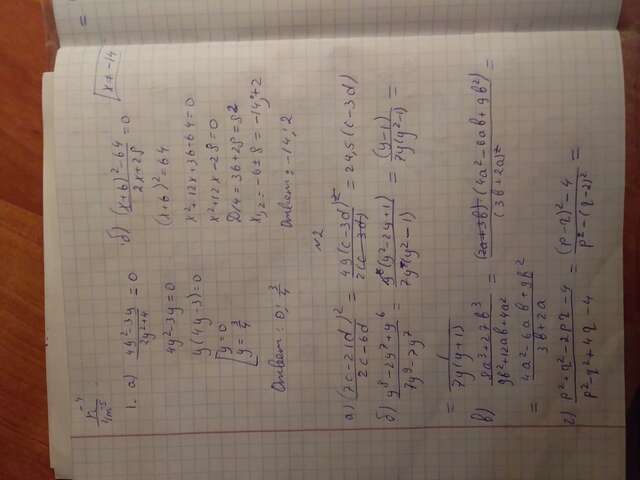 n⁻⁴/4m⁻⁵
1. а) (4y²-3y)/(2y²+4) = 0
4y²-3y=0
y(4y-3)=0
[y=0
y=3/4
Ответ: 0; 3/4
б) ((x+6)²-64)/(2x+28) = 0
x≠-14
(x+6)²=64
x²+12x+36-64=0
x²+12x-28=0
D/4=36+28=8²
x₁,₂=-6±8=-14;+2
Ответ: -14; 2
№2
а) (7c-21d)²/(2c-6d) = 49(c-3d)²/(2(c-3d)) = 24,5(c-3d)
б) (y⁸-2y⁷+y⁶)/(7y⁹-7y⁷) = y⁶(y²-2y+1)/(7y⁷(y²-1)) = (y-1)/(7y(y²-1)) =
= 1/(7y(y+1))
в) (8a³+27b³)/(9b²+12ab+4a²) = (2a+3b)(4a²-6ab+9b²)/(3b+2a)² =
= (4a²-6ab+9b²)/(3b+2a)
г) (p²+q²-2pq-4)/(p²-q²+4q-4) = ((p-q)²-4)/(p²-(q-2)²) =